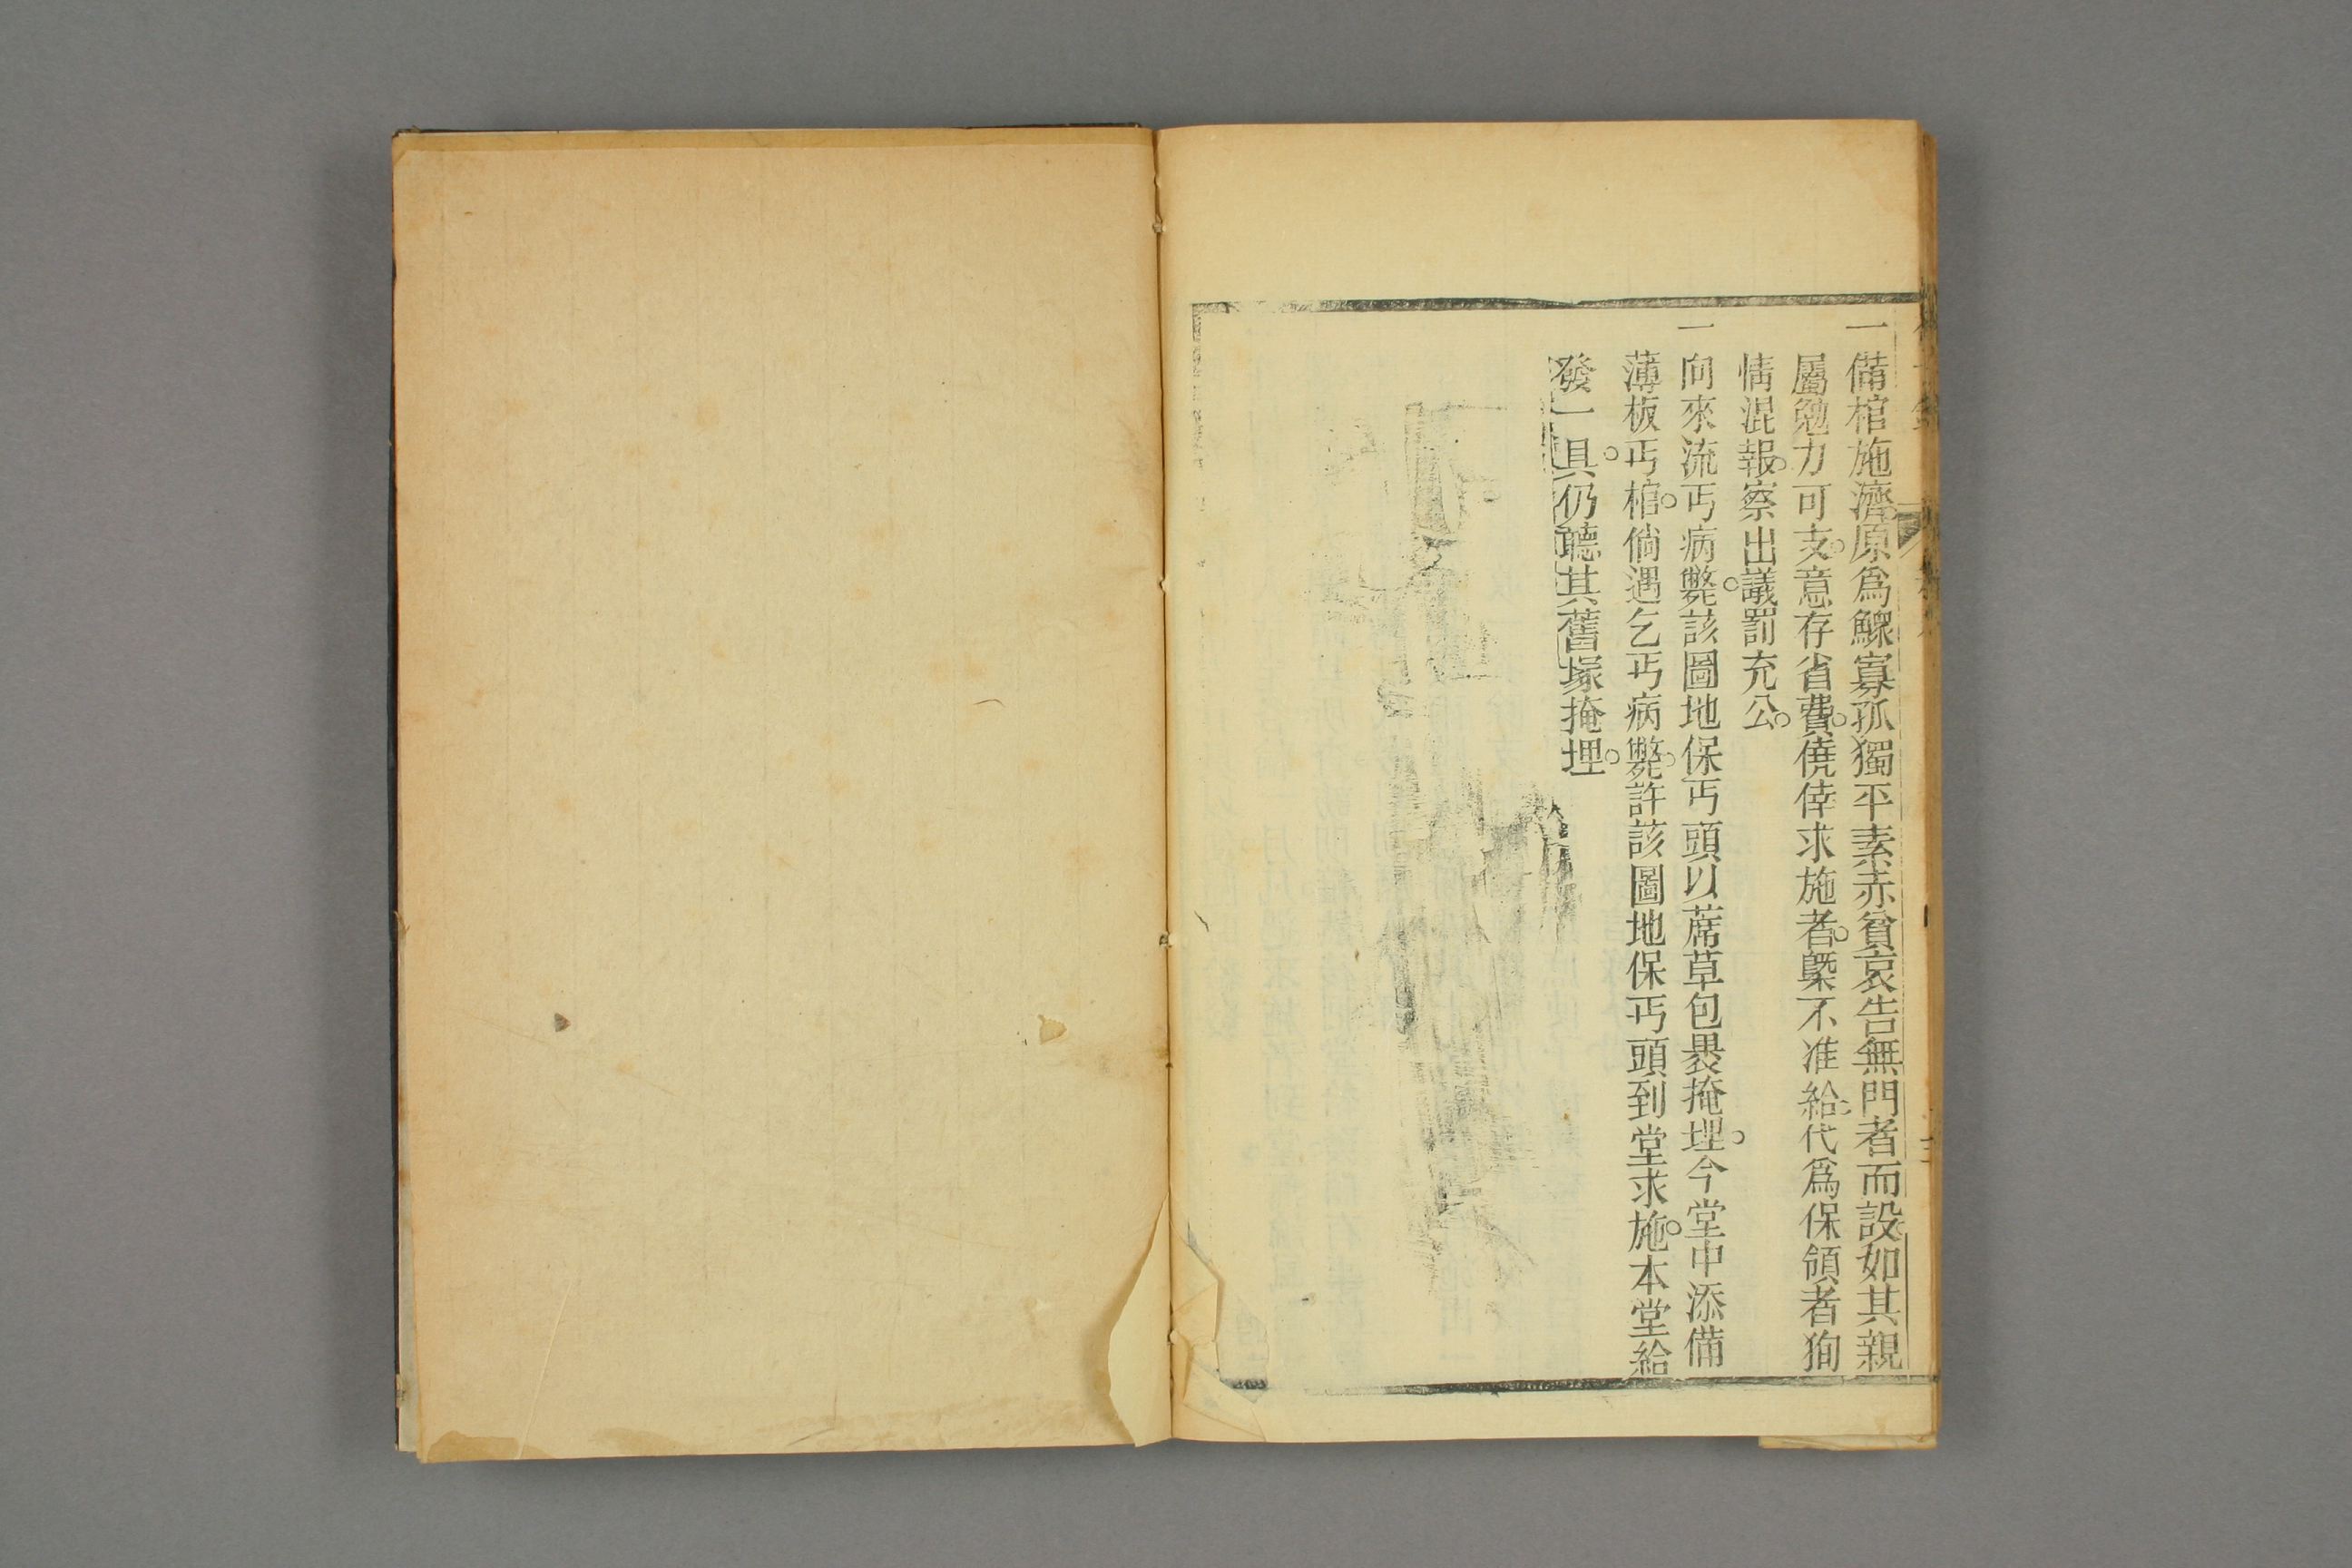 一備棺施濟原爲鰥寡孤獨平素赤貧哀告無門者而設如其親
屬勉力可支。意存省費。僥倖求施者。槩不准給。代爲保領者狥
情混報。察出議罰充公。
一向來流丐病斃。該圖地保丐頭以蓆草包裹掩埋。今堂中添備
薄板丐棺。倘遇乞丐病斃。許該圖地保丐頭到堂求施。本堂給
發一具。仍聽其舊塚掩埋。